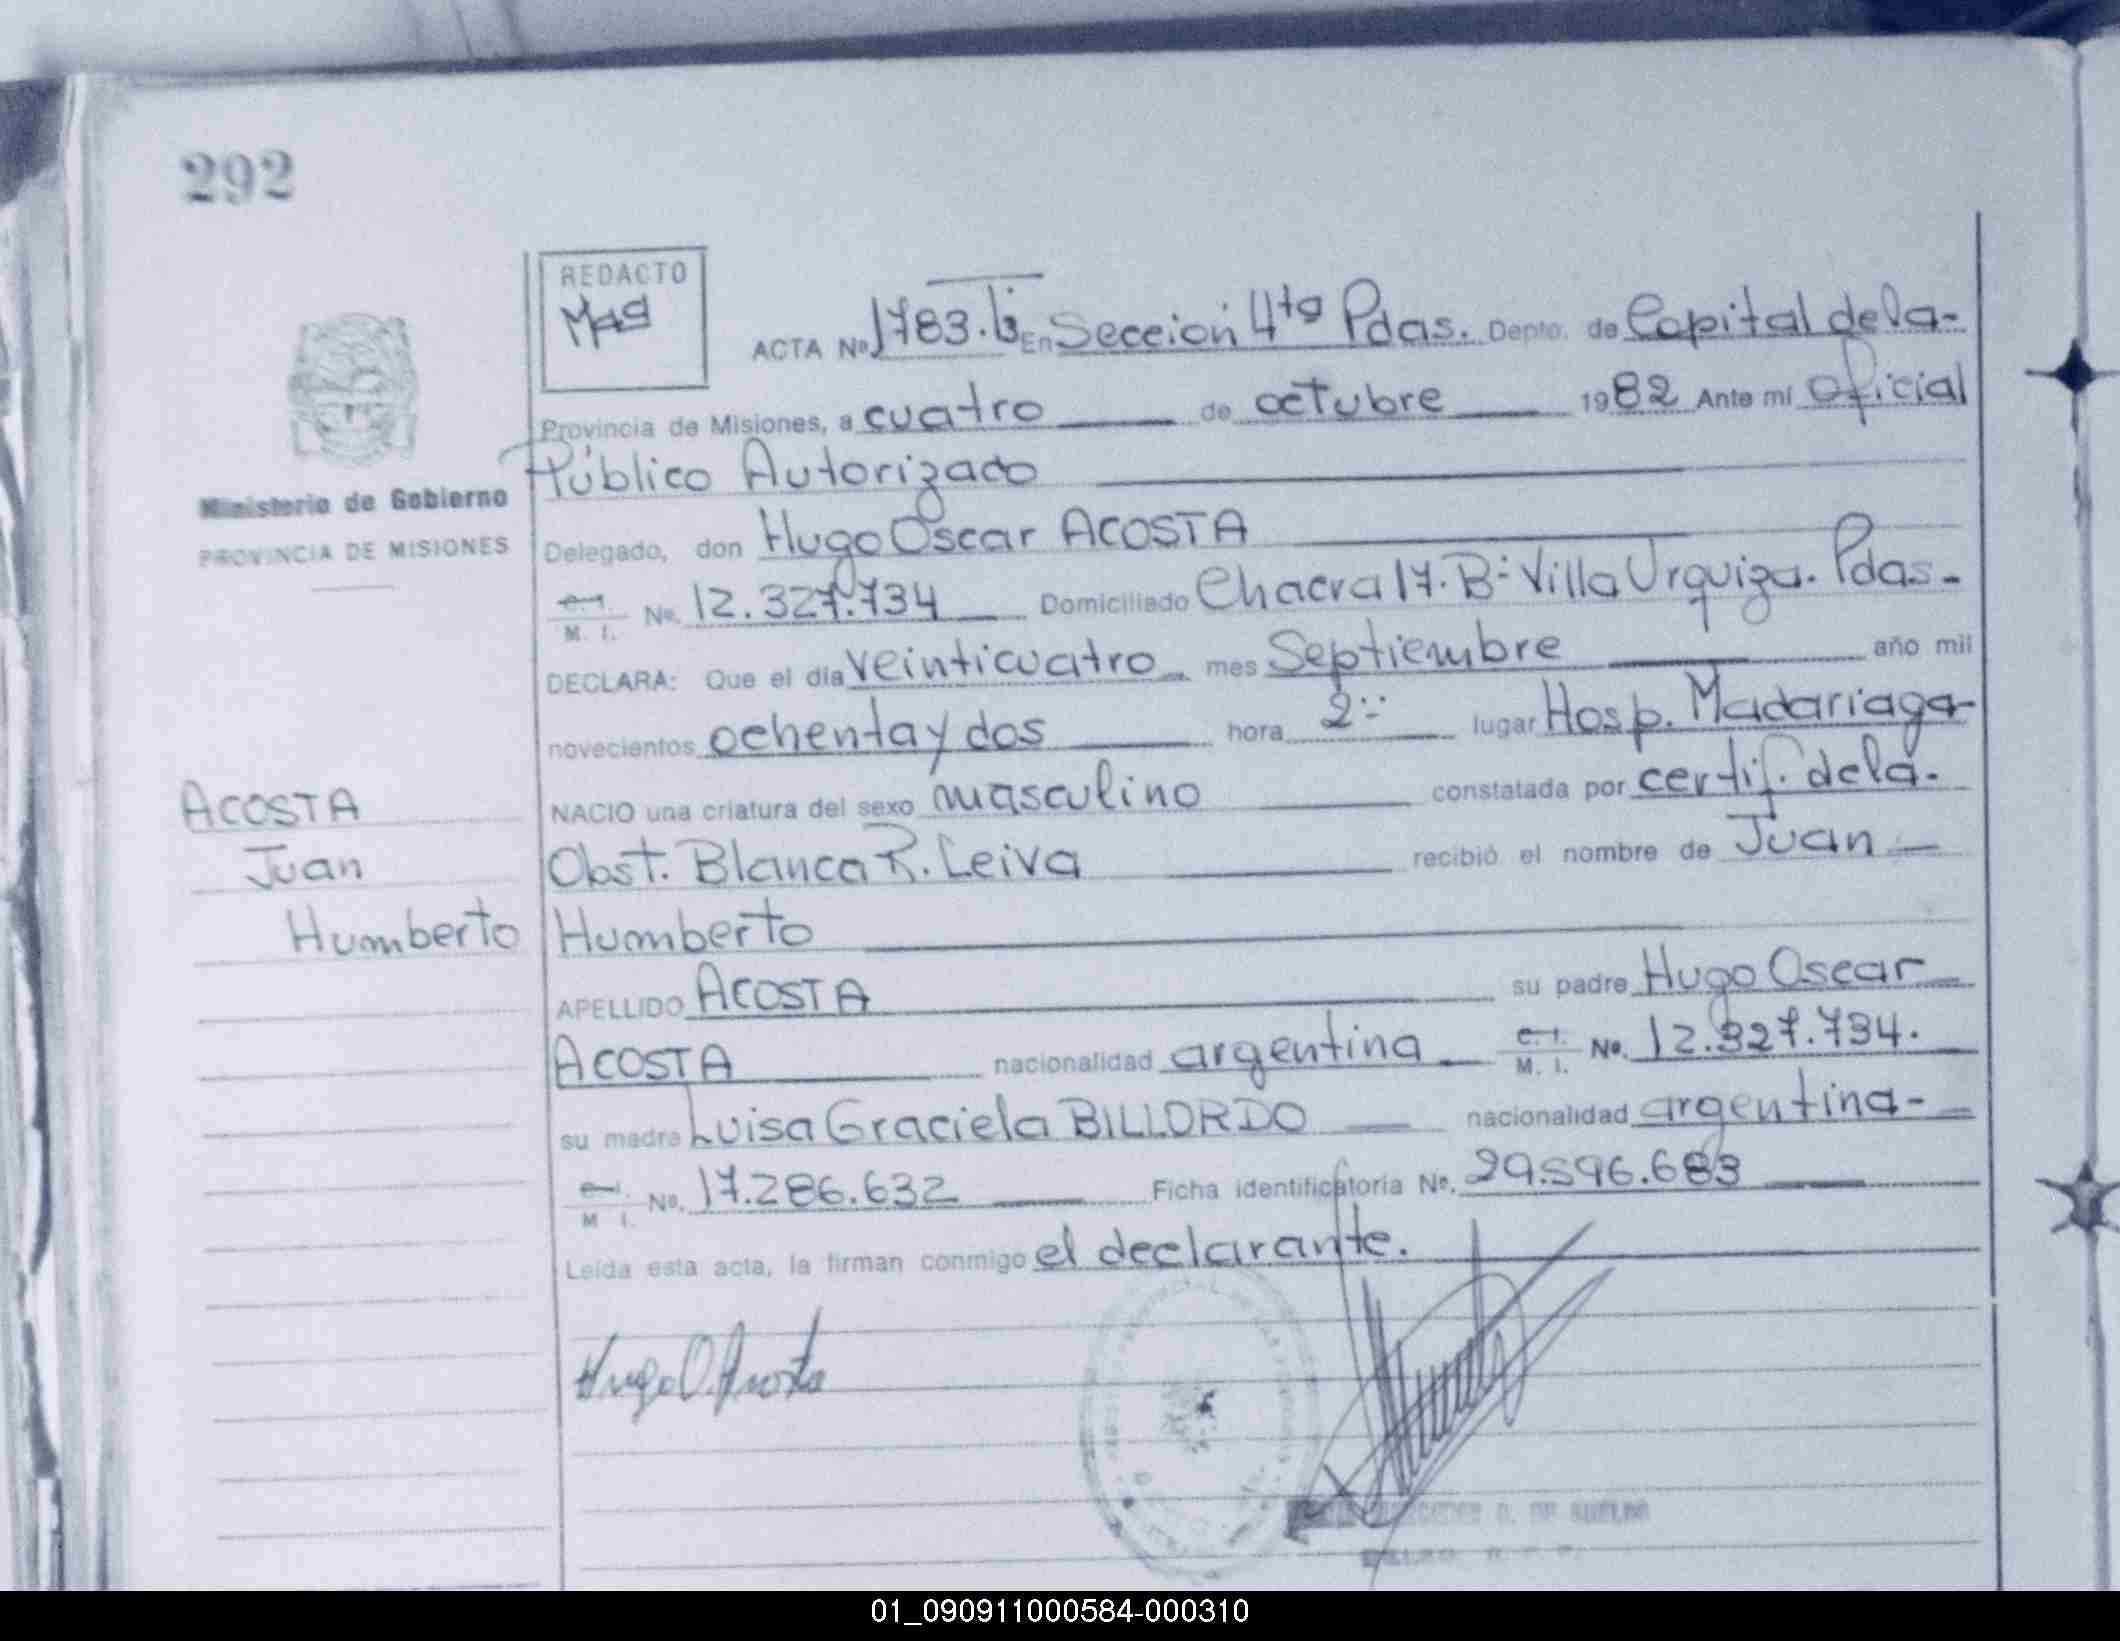 292
REDACTO
Mag
ACTA Nº 1783. En Sección 4ta Pdas. Depto. de Capital de la-
Provincia de Misiones, a cuatro de octubre 1982 Ante mí oficial
Público Autorizado
Ministerio de Gobierno
PROVINCIA DE MISIONES
Delegado, don Hugo Oscar ACOSTA
C.I. M. I. No. 12.327.734 Domiciliado Chacra 17. Bº Villa Urquiza. Pdas-
DECLARA: Que el día veinticuatro mes Septiembre año mil
novecientos ochenta y dos hora 2:- lugar Hosp. Madariaga-
NACIO una criatura del sexo masculino constatada por certif. de la.
Obst. Blanca R. Leiva recibió el nombre de Juan
Humberto
ACOSTA
Juan
Humberto
APELLIDO ACOSTA su padre Hugo Oscar
ACOSTA nacionalidad argentina C.I. M. I. No. 12.327.734.
su madre Luisa Graciela BILLORDO nacionalidad argentina-
C.I. M I. No. 17.286.632 Ficha identificatoria No. 29.596.683
Leída esta acta, la firman conmigo el declarante.
Hugo O. Acosta
01_090911000584-000310